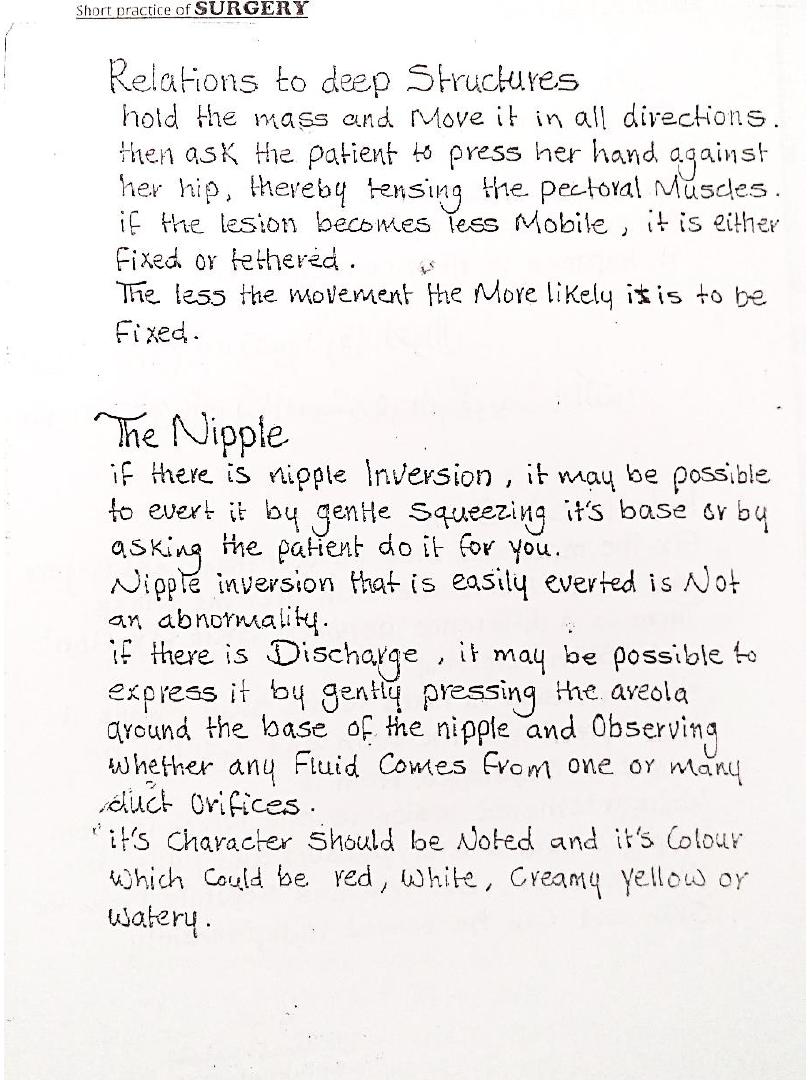 Short practice of SURGERY
Relations to deep Structures
hold the mass and Move it in all directions.
then ask the patient to press her hand against
her hip, thereby tensing the pectoral Muscles.
if the lesion becomes less Mobile, it is either
Fixed or tethered.
The less the movement the More likely it is to be
Fixed.
The Nipple
if there is nipple Inversion, it may be possible
to evert it by gentle Squeezing it's base or by
asking the patient do it for you.
Nipple inversion that is easily everted is Not
an abnormality.
if there is Discharge, it may be possible to
express it by gently pressing the areola
around the base of the nipple and Observing
whether any Fluid Comes From one or many
duct Orifices.
it's Character Should be Noted and it's Colour
which Could be red, White, Creamy yellow or
watery.